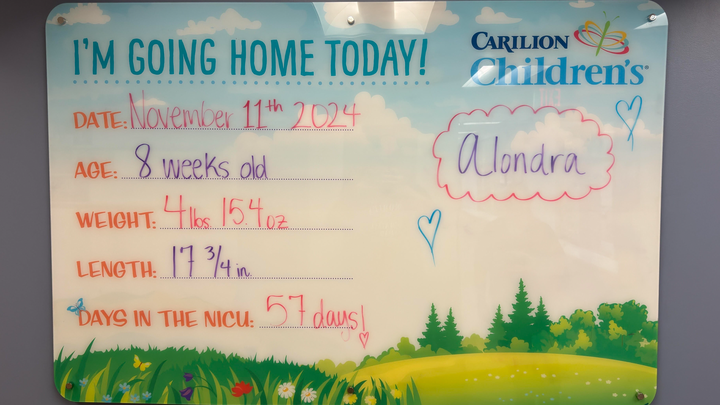 I'M GOING HOME TODAY!
CARILION
Children's®
DATE: November 11th 2024
AGE: 8 weeks old
Alondra
WEIGHT: 4 lbs 15.4 oz
LENGTH: 17 3/4 in
DAYS IN THE NICU: 57 days!